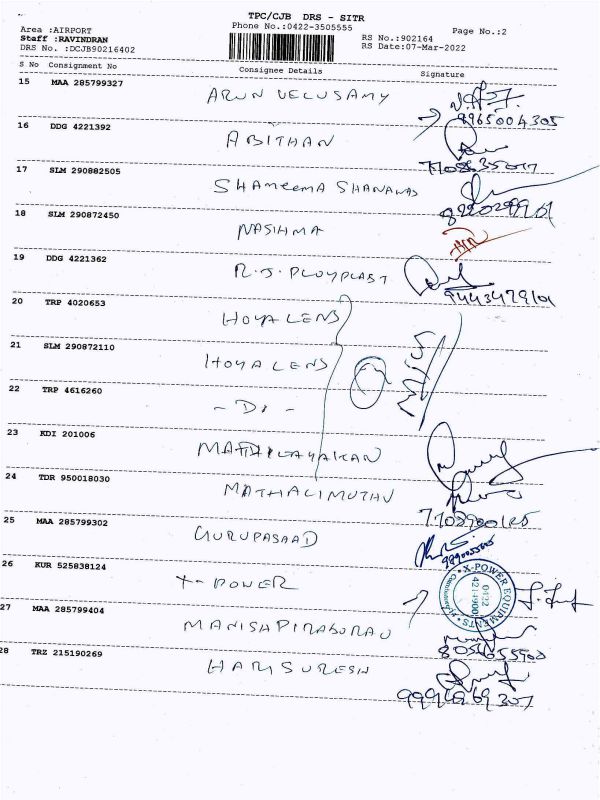 TPC/CJB DRS - SITR
Phone No.:0422-3505555
Page No.:2
Area :AIRPORT
Staff :RAVINDRAN
DRS No. :DCJB90216402
RS No.:902164
RS Date:07-Mar-2022
S No Consignment No Consignee Details Signature
15 MAA 285799327 ARUN VELUSAMY
9965004305
16 DDG 4221392 ABITHAN
17 SLM 290882505 SHAMEEMA SHANAVAS
18 SLM 290872450 NASIHMA
19 DDG 4221362 R.J. PLOYPLAST
20 TRP 4020653 HOYA LENS
21 SLM 290872110 HOYA LENS
22 TRP 4616260 - DO -
23 KDI 201006
24 TDR 950018030 MATHALIMUTHU
25 MAA 285799302 GURUPASAAD
26 KUR 525838124 X-POWER
X-POWER EQUIPMENTS
0422
27 MAA 285799404 MANISHPIRABURAJ
28 TRZ 215190269 HARISURESH